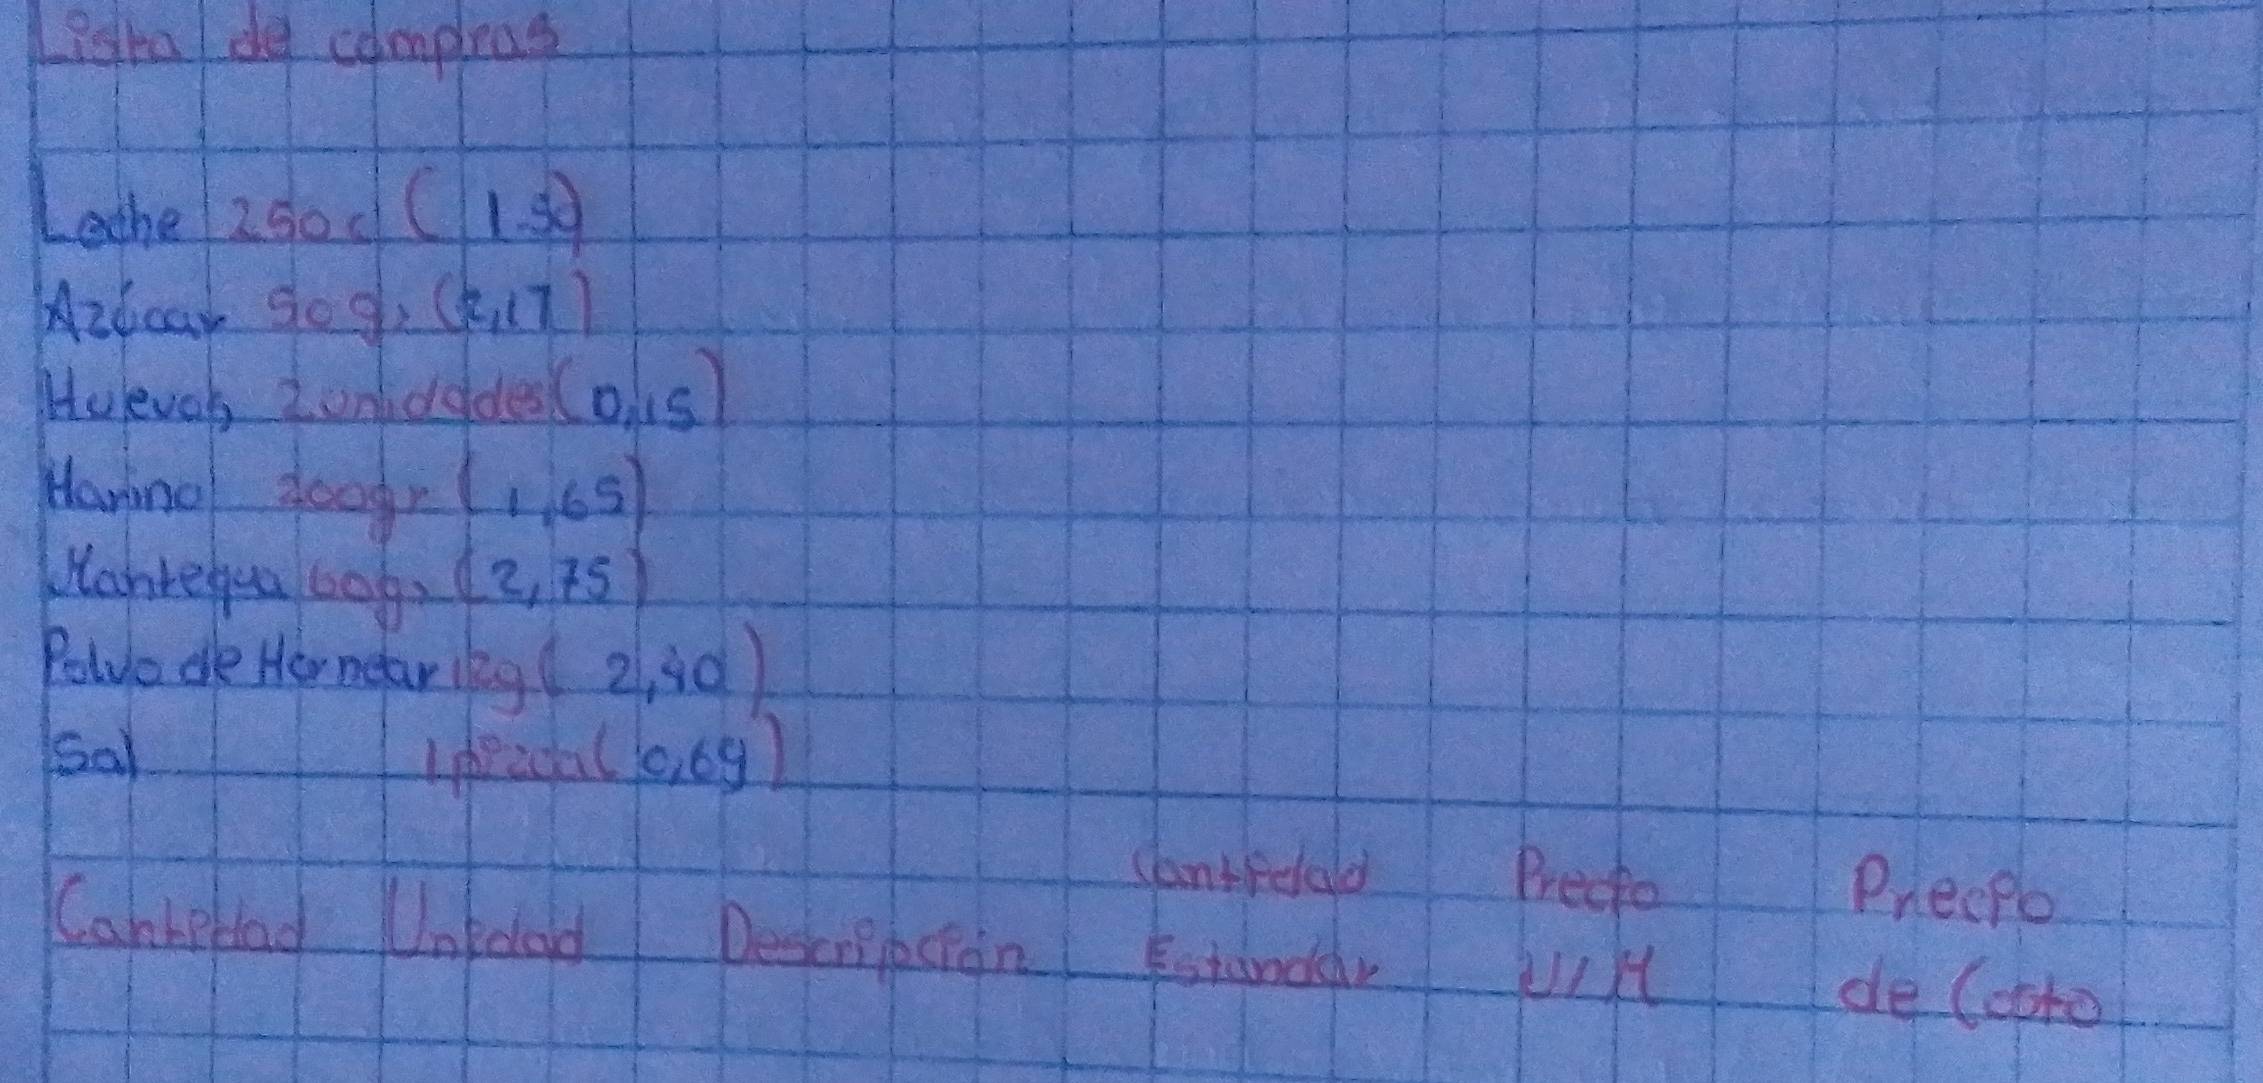 Lista de compras
Leche 250c (1.50)
Azúcar 50g, (2,17)
Huevos 2 unidades (0,15)
Harina 200gr (1,65)
Mantequa 60g, (2,75)
Polvo de Hornear 12g (2,40)
Sal 1 pizca (0,69)
Cantidad Unidad Descripción Cantidad Estandar Precio U/M Precio de Costo